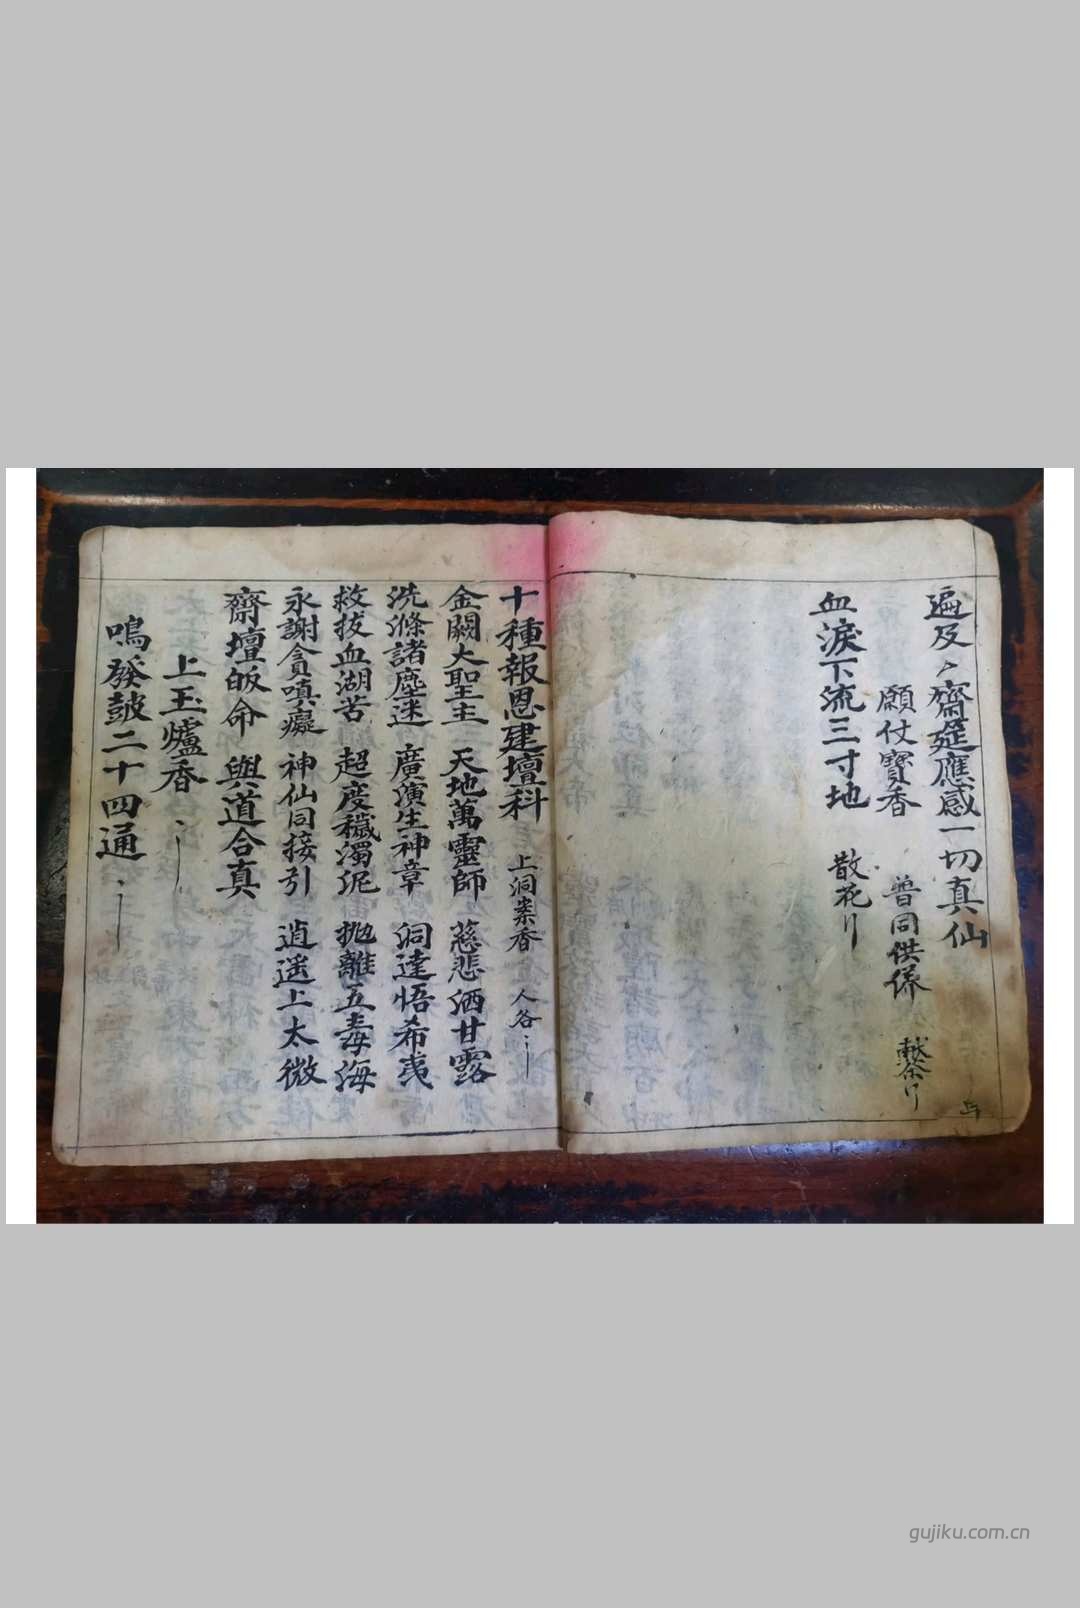 遍及〻齋筵應感一切真仙
願仗寶香 普同供養
血淚下流三寸地 散花
十種報恩建壇科 上洞案香 人各
金闕大聖主 天地萬靈師 慈悲洒甘露
洗滌諸塵迷 廣演生神章 洞達悟希夷
救拔血湖苦 超度穢濁泥 拋離五毒海
永謝貪嗔癡 神仙同接引 逍遥上太微
齋壇皈命 與道合真
上玉爐香
鳴發鼓二十四通
gujiku.com.cn